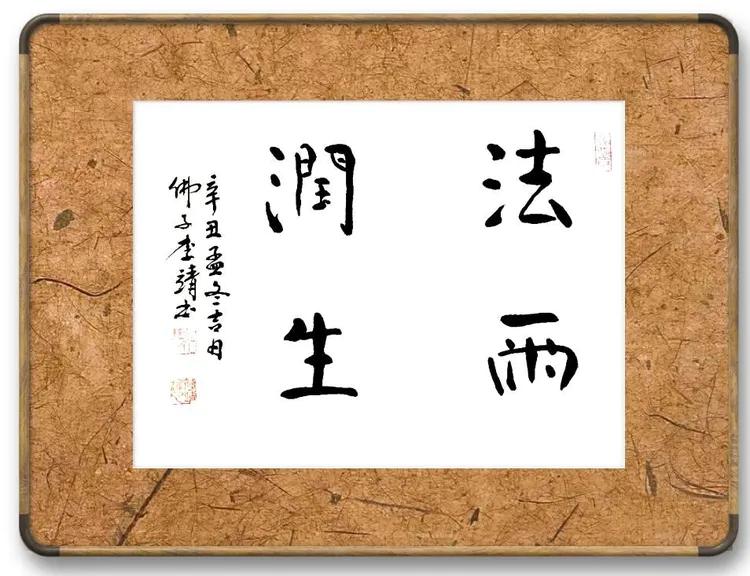 法雨
潤生
辛丑孟冬吉日
佛子李靖书